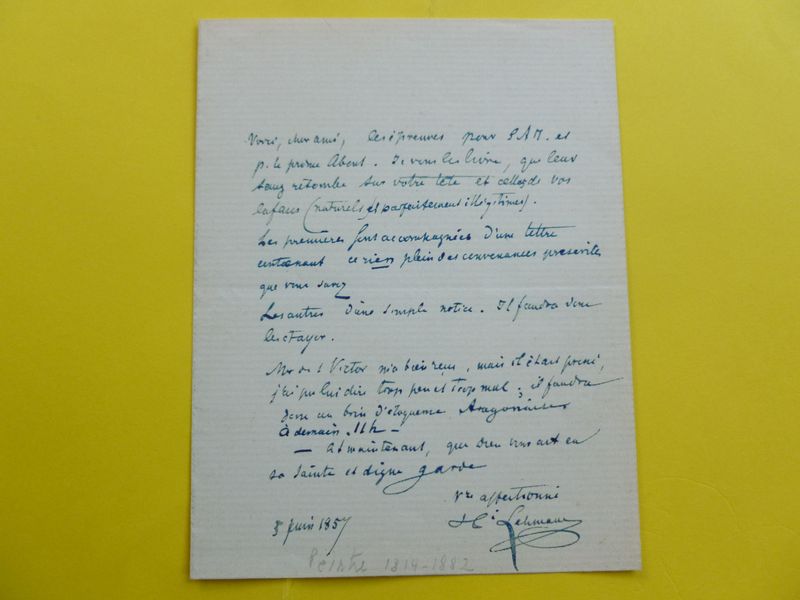 Voici, cher ami, les épreuves pour S.A.I. et
p. le prince About. Je vous les livre, que leur
sang retombe sur votre tête et celle de vos
enfans (naturels et parfaitement illégitimes).
Les premières sont accompagnées d'une lettre
contenant ce rien plein des convenances prescrites
que vous savez
Les autres d'une simple notice. Il faudra donc
les étayer.
Mr de St Victor m'a bien reçu, mais il était pressé,
j'ai pu lui dire trop peu et trop mal ; il faudra
donc un brin d'éloquence
à demain. 11 h —
— Et maintenant, que Dieu vous ait en
sa sainte et digne garde
Vre affectionné
Hi Lehmann
5 juin 1857
Peintre 1814-1882